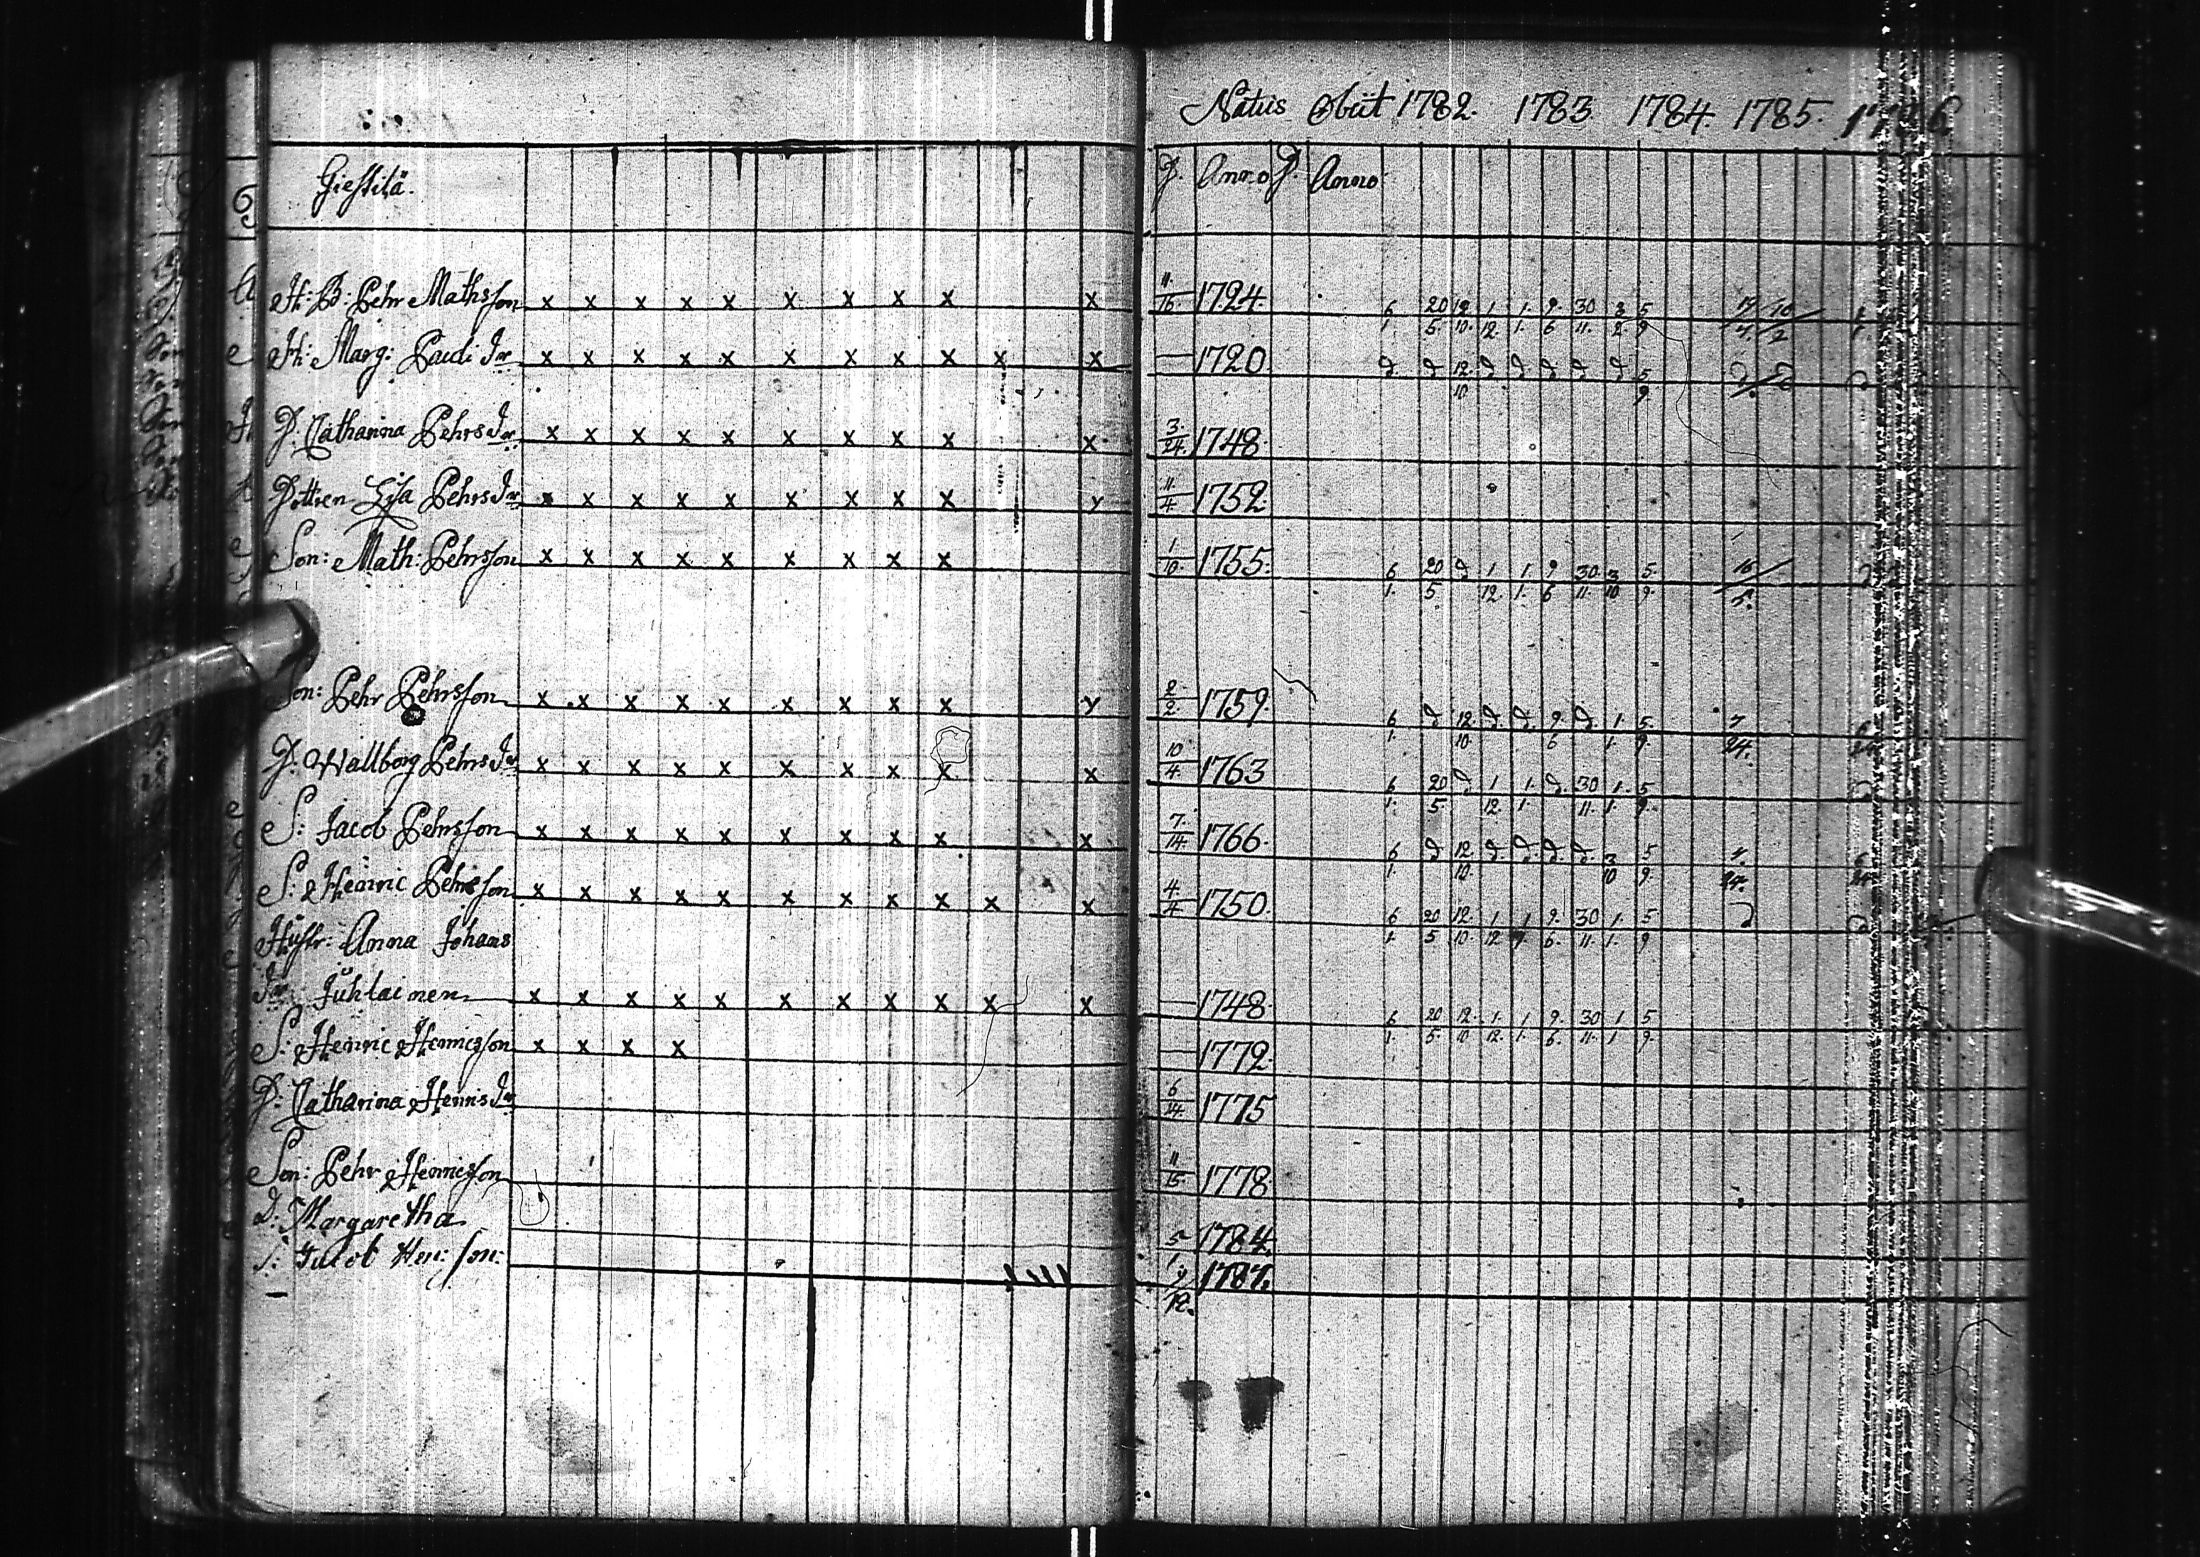 Natus Obiit 1782. 1783 1784. 1785. 1786
Giestilä. D. Anno D. Anno
H: B: Pehr Mathsson x x x x x x x x x x 11/16. 1724. 6/1. 20/5. 12/10. 1/12. 1./1. 9./6 30/11. 3/2. 5/9
H: Marg: Pauli Dr x x x x x x x x x x x — 1720 d d 12./10. d d d d d 5/9
D. Catharina Pehrs Dr x x x x x x x x x x 3./24. 1748.
Dottren Lisa Pehrs Dr x x x x x x x x x x 11/4 1752.
Son: Math: Pehrsson x x x x x x x x x 1/10. 1755. 6/1. 20/5. d 1/12. 1./1. 9/6 30./11. 3/10 5./9.
Son: Pehr Pehrsson x x x x x x x x x x 2./2. 1759. 6/1. d 12./10. d d 9./6 d. 1./1. 5./9. 7/24.
D. Wallborg Pehrs Dr x x x x x x x x x x 10/4 1763 6/1. 20/5. d 1/12. 1./1. d. 30/11. 1./1. 5/9.
S: Jacob Pehrsson x x x x x x x x x x 7./14. 1766. 6/1. d 12./10. d. d. d. d. 3/10 5/9.
S: Henric Pehrsson x x x x x x x x x x x 4/4 1750. 6/1. 20/5 12./10. 1/12 1 9./6. 30/11. 1./1. 5/9
Hustr: Anna Johans
Dr Juhlainen x x x x x x x x x x x — 1748. 6/1. 20/5. 12./10 1./12. 1/1. 9./6. 30/11. 1/1 5/9.
S: Henric Henricsson x x x x — 1772.
D: Catharina Henrics Dr 6/14. 1775
Son: Pehr Henricsson 11/15. 1778.
D: Margaretha 5/1 1784.
S: Jacob Hen: son: 9/12. 1787.